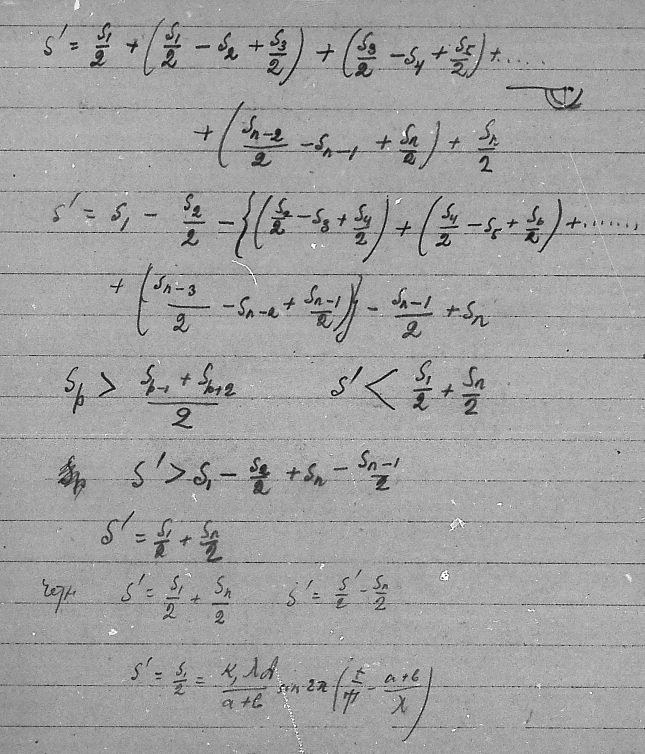 S' = S₁/2 + (S₁/2 − S₂ + S₃/2) + (S₃/2 − S₄ + S₅/2) + .....
+ (Sₙ₋₂/2 − Sₙ₋₁ + Sₙ/2) + Sₙ/2
S' = S₁ − S₂/2 − {(S₂/2 − S₃ + S₄/2) + (S₄/2 − S₅ + S₆/2) + ......
+ (Sₙ₋₃/2 − Sₙ₋₂ + Sₙ₋₁/2)} − Sₙ₋₁/2 + Sₙ
Sₚ > (Sₚ₋₁ + Sₚ₊₂)/2 S' < S₁/2 + Sₙ/2
S' > S₁ − S₂/2 + Sₙ − Sₙ₋₁/2
S' = S₁/2 + Sₙ/2
четн S' = S₁/2 + Sₙ/2 S' = S'/2 − Sₙ/2
S' = S₁/2 = K₁λA/(a+b) sin 2π (t/T − (a+b)/λ)